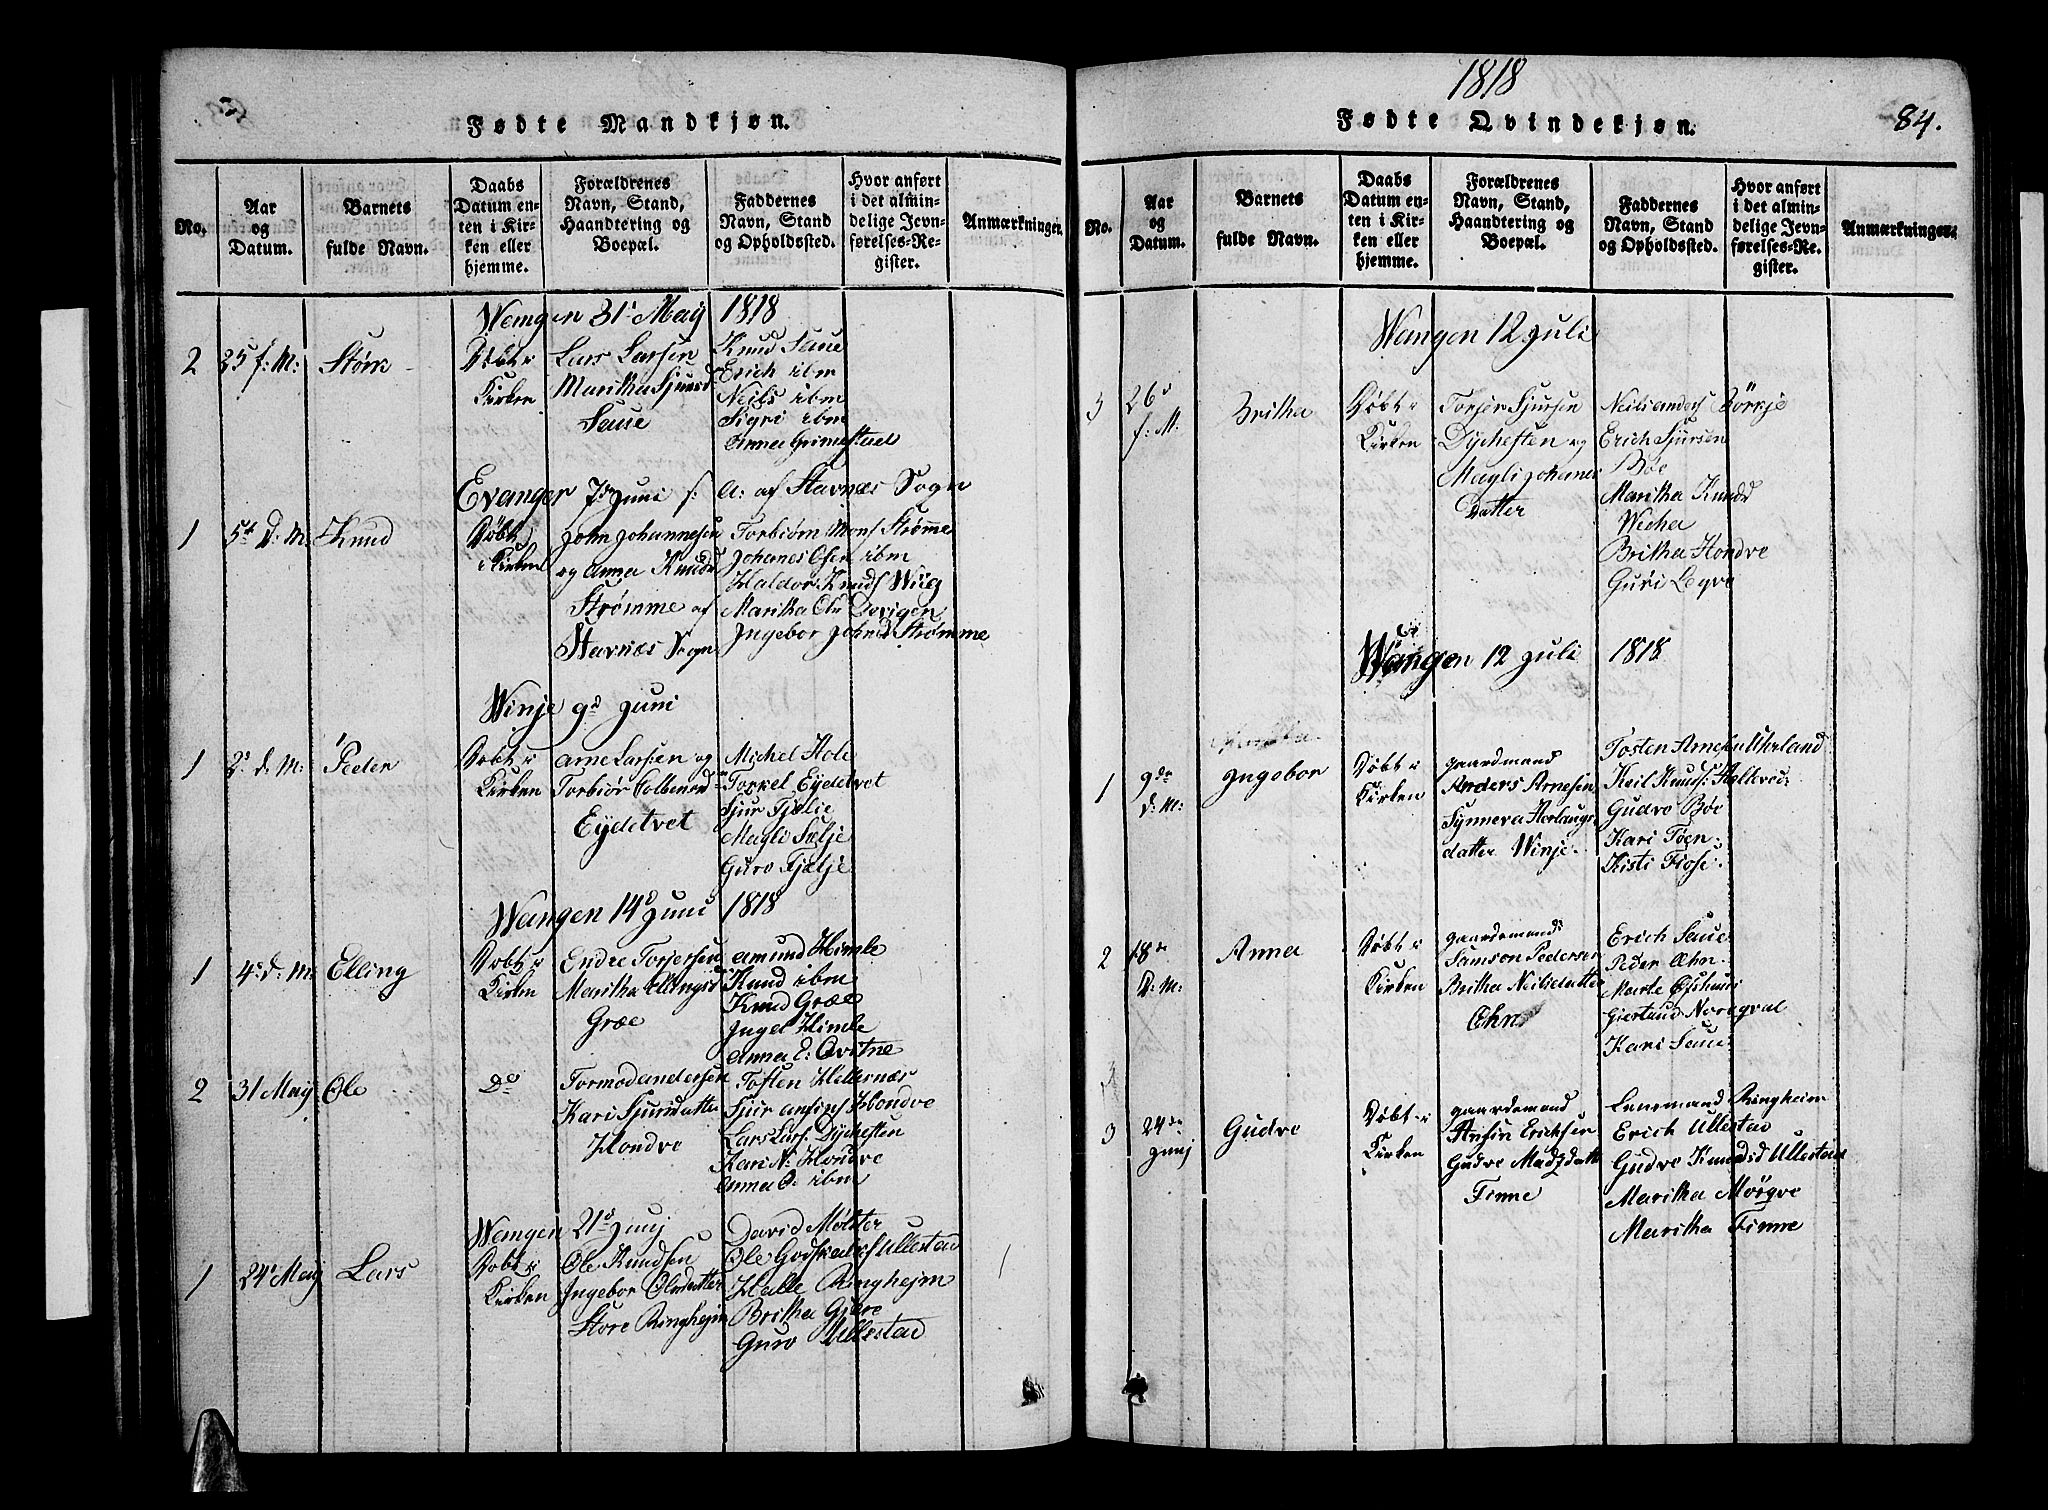 Fødte Mandkjøn.
No.
Aar
og
Datum.
Barnets
fulde Navn.
Daabs
Datum en-
ten i Kir-
ken eller
hjemme.
Forældrenes
Navn, Stand,
Haandtering og
Boepæl.
Faddernes
Navn, Stand
og Opholdssted.
Hvor anført
i det almin-
delige Jevn-
førelses-Re-
gister.
Anmærkninger.
Wangen 31' Maij 1818
2 25 f: M: Størk
Døbt i
Kirken
Lars Larsen
Maritha Sjursd
Saue
Knud Saue
Erich ibm
Neils ibm
Sigri ibm
Anna Grimestad
Evanger 7de Juni f: a: af Stavnæs Sogn
1 5t d. M: Knud
Døbt
i Kirken
John Johannesen
og Anna Knudsd
Strømme af
Stavnæs Sogn
Torbiørn Mons Strømme
Johanes Olsen ibm
Haldor Knuds Wiig
Maritha Ols
Ingebor Johnsd Strømme
Winje 9d Juni
1 2d d. M: Peder
Døbt i
Kirken
Arne Larsen og
Torbiør Colbensd
Eydetvet
Michel Hole
Torkel Eydetvet
Sjur Fjelie
Magli Sælje
Guro Fjælje
Wangen 14d Juni 1818
1 4de d: M: Elling
Døbt i
Kirken
Endre Torjersen
Maritha Ellingsd
Græe
Amund Himle
Knud ibm
Knud Græe
Ingel Himle
Anna E: Qvitne
2 31 Maij Ole
Do
Tormod Andersen
Kari Sjursdatter
Hondve
Tosten Hellesnæs
Sjur Anfins Hondve
Lars Lars: Dychesten
Kari N: Hondve
Anna O: ibm
Wangen 21d Junj
1 24' Maij Lars
Døbt i
Kirken
Ole Knudsen
Ingebor Olsdatter
Store Ringhejm
David Mølster
Ole Godskalks Ullestad
Halle Ringhejm
Britha Gjere
Guro Ullestad
1818
Fødte Qvindekjøn.
84.
No.
Aar
og
Datum.
Barnets
fulde Navn.
Daabs
Datum en-
ten i Kir-
ken eller
hjemme.
Forældrenes
Navn, Stand,
Haandtering og
Boepæl.
Faddernes
Navn, Stand
og Opholdssted.
Hvor anført
i det almin-
delige Jevn-
førelses-Re-
gister.
Anmærkninger.
Wangen 12 Juli
3 26d
f. M.
Britha
Døbt i
Kirken
Torjer Sjursen
Dychesten og
Magli Johanes
Datter
Neili Anders Børkje
Erich Sjursen
Bøe
Maritha Knudsd
Wicha
Britha Hondve
Guri Leqve
Wangen 12 Juli 1818
1 9de
d: M:
Ingebor
Døbt i
Kirken
Gaardemand
Anders Arnesen
Synneva Herlaugs
datter Winje.
Tosten Arnesen Uhrland
Keil Knuds: Helleved:
Gudve Bøe
Kari Tøen
Kisti Fiose.
2 18de
D: M:
Anna
Døbt i
Kirken
Gaardemand:
Samson Pedersen
Britha Neilsdatter
Øhn
Erich Saue
Peder Æhn.
Marte Øfshuus
Giertrud Noreqval
Kari Saue
3 24de
Junj
Gudve
Døbt i
Kirken
Gaardemand
Anfin Ericksen
Gudve Madzdatter
Finne
Lensmand Ringheim
Erich Ullestad
Gudve Knudsd Ullestad
Maritha Mørqve
Maritha Finne